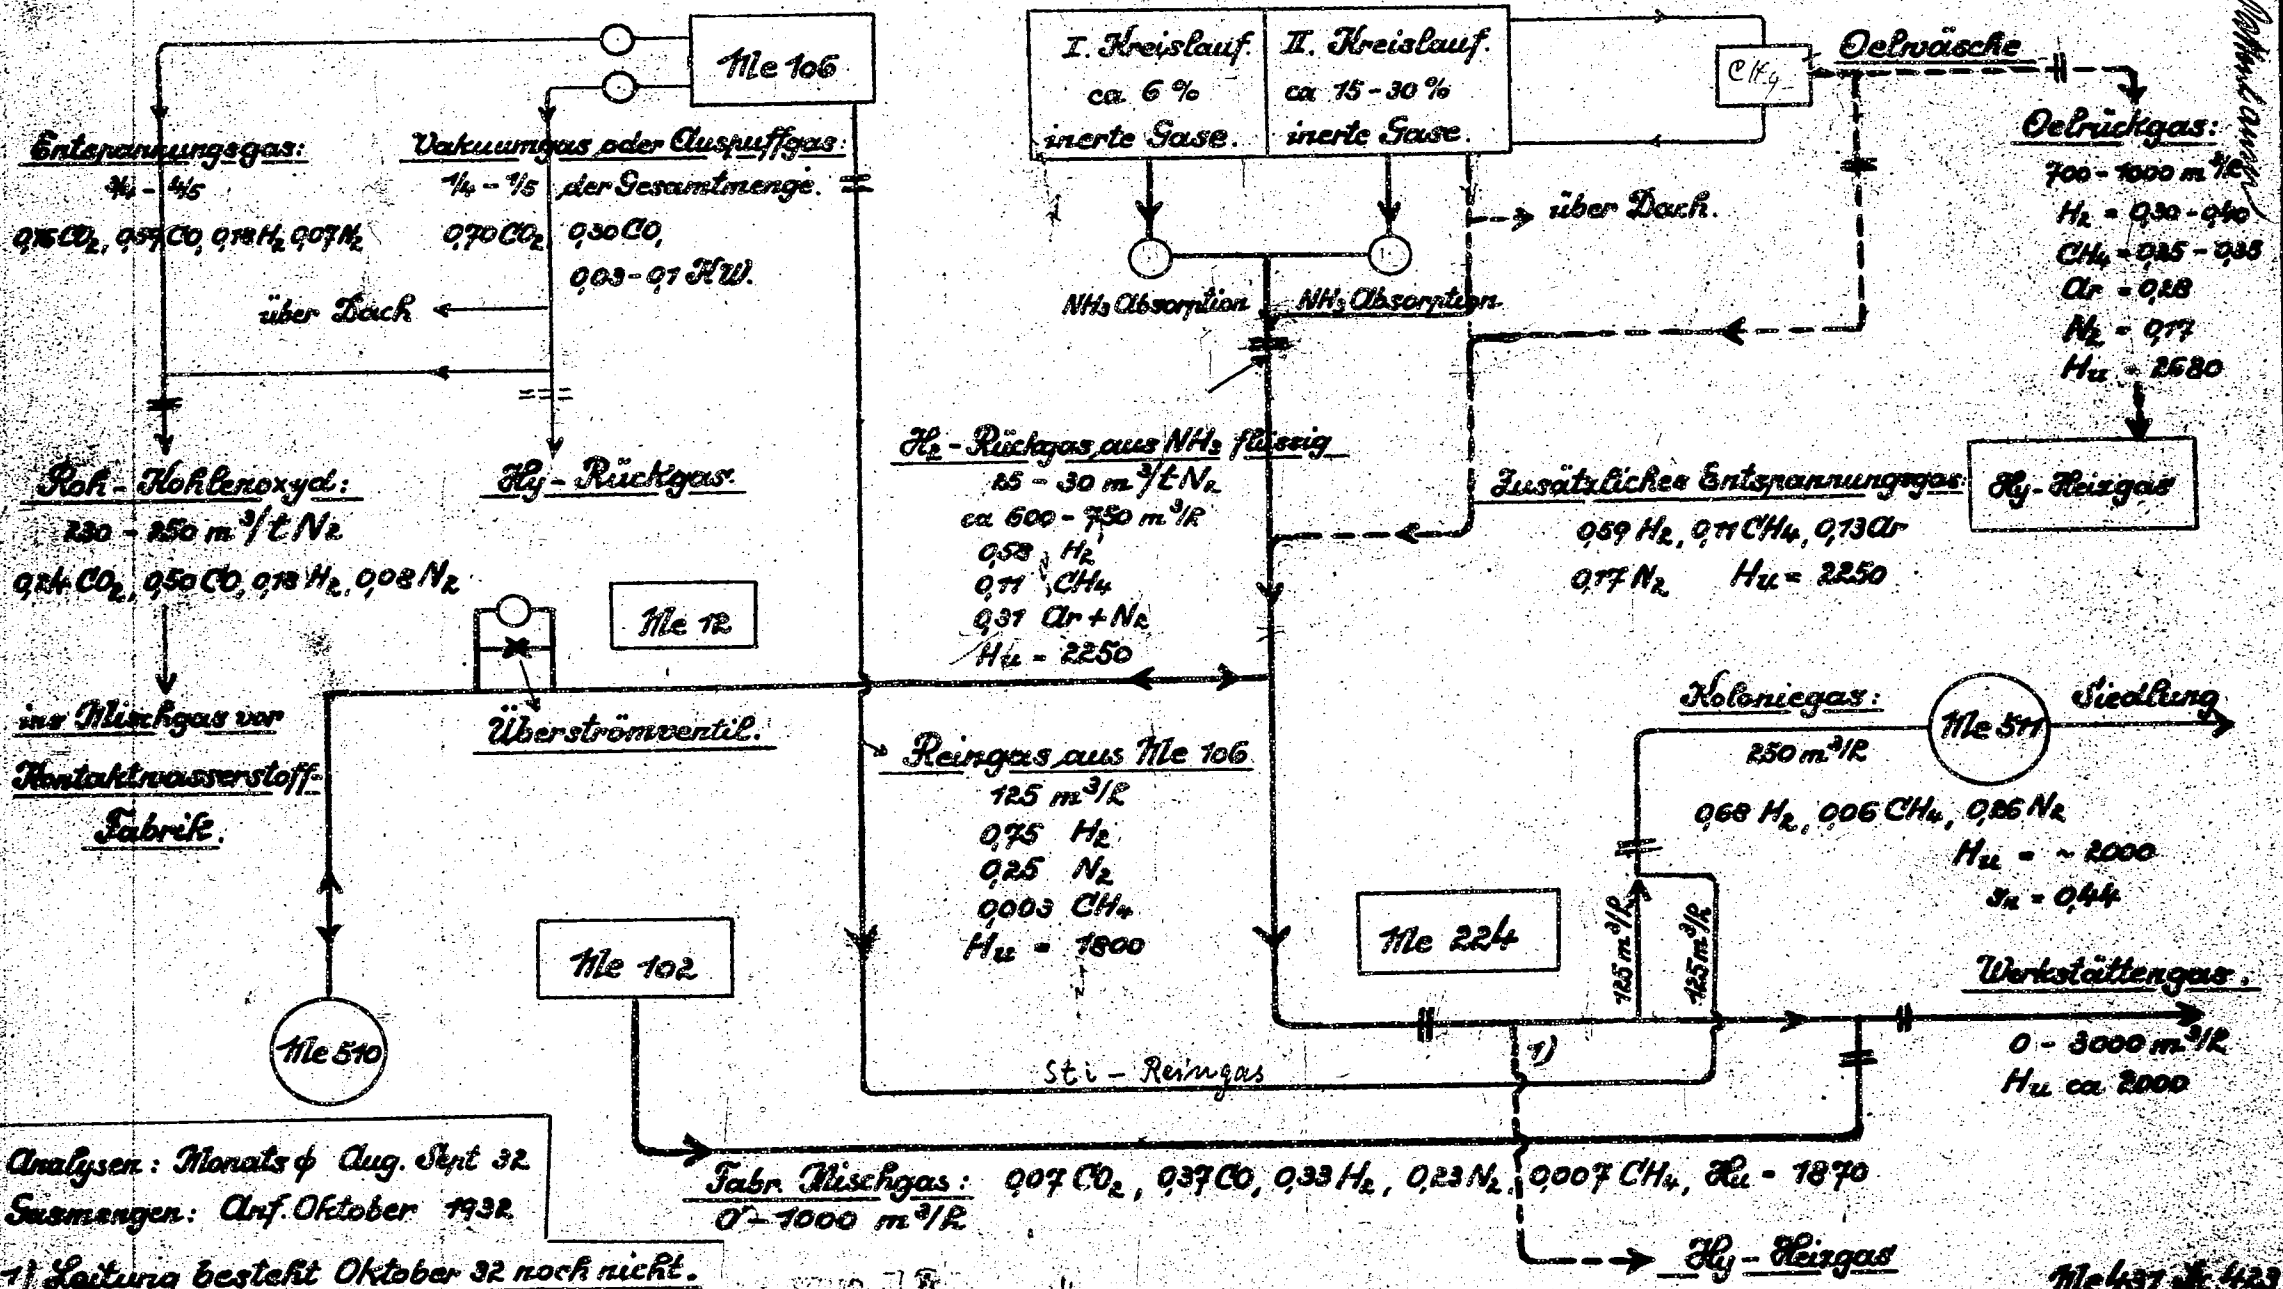 Me 106
I. Kreislauf.
ca 6 %
inerte Gase.
II. Kreislauf.
ca 15-30 %
inerte Gase.
CH4
Oelwäsche
Oelrückgas:
700-1000 m³/h
H2 = 0,30-0,40
CH4 = 0,25-0,35
Ar = 0,28
N2 = 0,17
Hu = 2680
Hy-Heizgas
Entspannungsgas:
3/4 - 4/5
0,16 CO2, 0,59 CO, 0,18 H2 0,07 N2
Vakuumgas oder Auspuffgas:
1/4 - 1/5 der Gesamtmenge.
0,70 CO2, 0,30 CO,
0,03-0,1 KW.
über Dach
über Dach.
NH3 Absorption
NH3 Absorption
Roh-Kohlenoxyd:
230 - 250 m³/t N2
0,24 CO2, 0,50 CO, 0,18 H2, 0,08 N2
ins Mischgas vor
Kontaktwasserstoff-
Fabrik.
Hy-Rückgas.
H2-Rückgas aus NH3 flüssig
25 - 30 m³/t N2
ca 600-750 m³/h
0,58 H2
0,11 CH4
0,31 Ar + N2
Hu = 2250
Zusätzliches Entspannungsgas:
0,59 H2, 0,11 CH4, 0,13 Ar
0,17 N2 Hu = 2250
Me 12
Überströmventil.
Reingas aus Me 106
125 m³/h
0,75 H2
0,25 N2
0,003 CH4
Hu = 1800
Koloniegas:
250 m³/h
Me 511
Siedlung
0,68 H2, 0,06 CH4, 0,26 N2
Hu = ~ 2000
sn = 0,44
Me 102
Me 510
Me 224
125 m³/h
125 m³/h
Werkstättengas.
0 - 3000 m³/h
Hu ca 2000
1)
Sti - Reingas
Fabr. Mischgas: 0,07 CO2, 0,37 CO, 0,33 H2, 0,23 N2, 0,007 CH4, Hu = 1870
0 - 1000 m³/h
Hy-Heizgas
Analysen: Monats ϕ Aug. Sept 32
Gasmengen: Anf. Oktober 1932
1) Leitung besteht Oktober 32 noch nicht.
Me 431